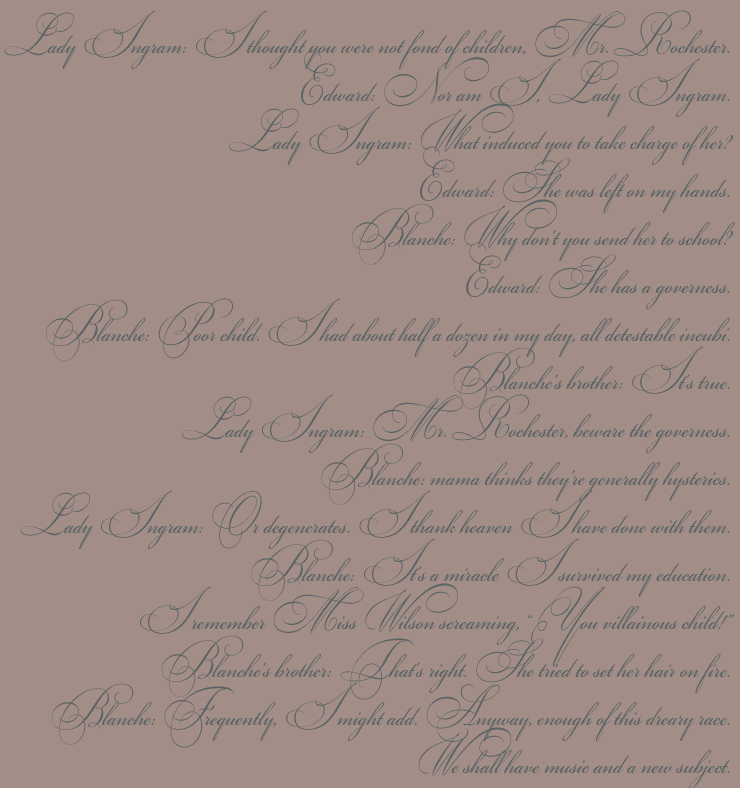 Lady Ingram: I thought you were not fond of children, Mr. Rochester.
Edward: Nor am I, Lady Ingram.
Lady Ingram: What induced you to take charge of her?
Edward: She was left on my hands.
Blanche: Why don't you send her to school?
Edward: She has a governess.
Blanche: Poor child. I had about half a dozen in my day, all detestable incubi.
Blanche's brother: It's true.
Lady Ingram: Mr. Rochester, beware the governess.
Blanche: mama thinks they're generally hysterics.
Lady Ingram: Or degenerates. I thank heaven I have done with them.
Blanche: It's a miracle I survived my education.
I remember Miss Wilson screaming, "You villainous child!"
Blanche's brother: That's right. She tried to set her hair on fire.
Blanche: Frequently, I might add. Anyway, enough of this dreary race.
We shall have music and a new subject.